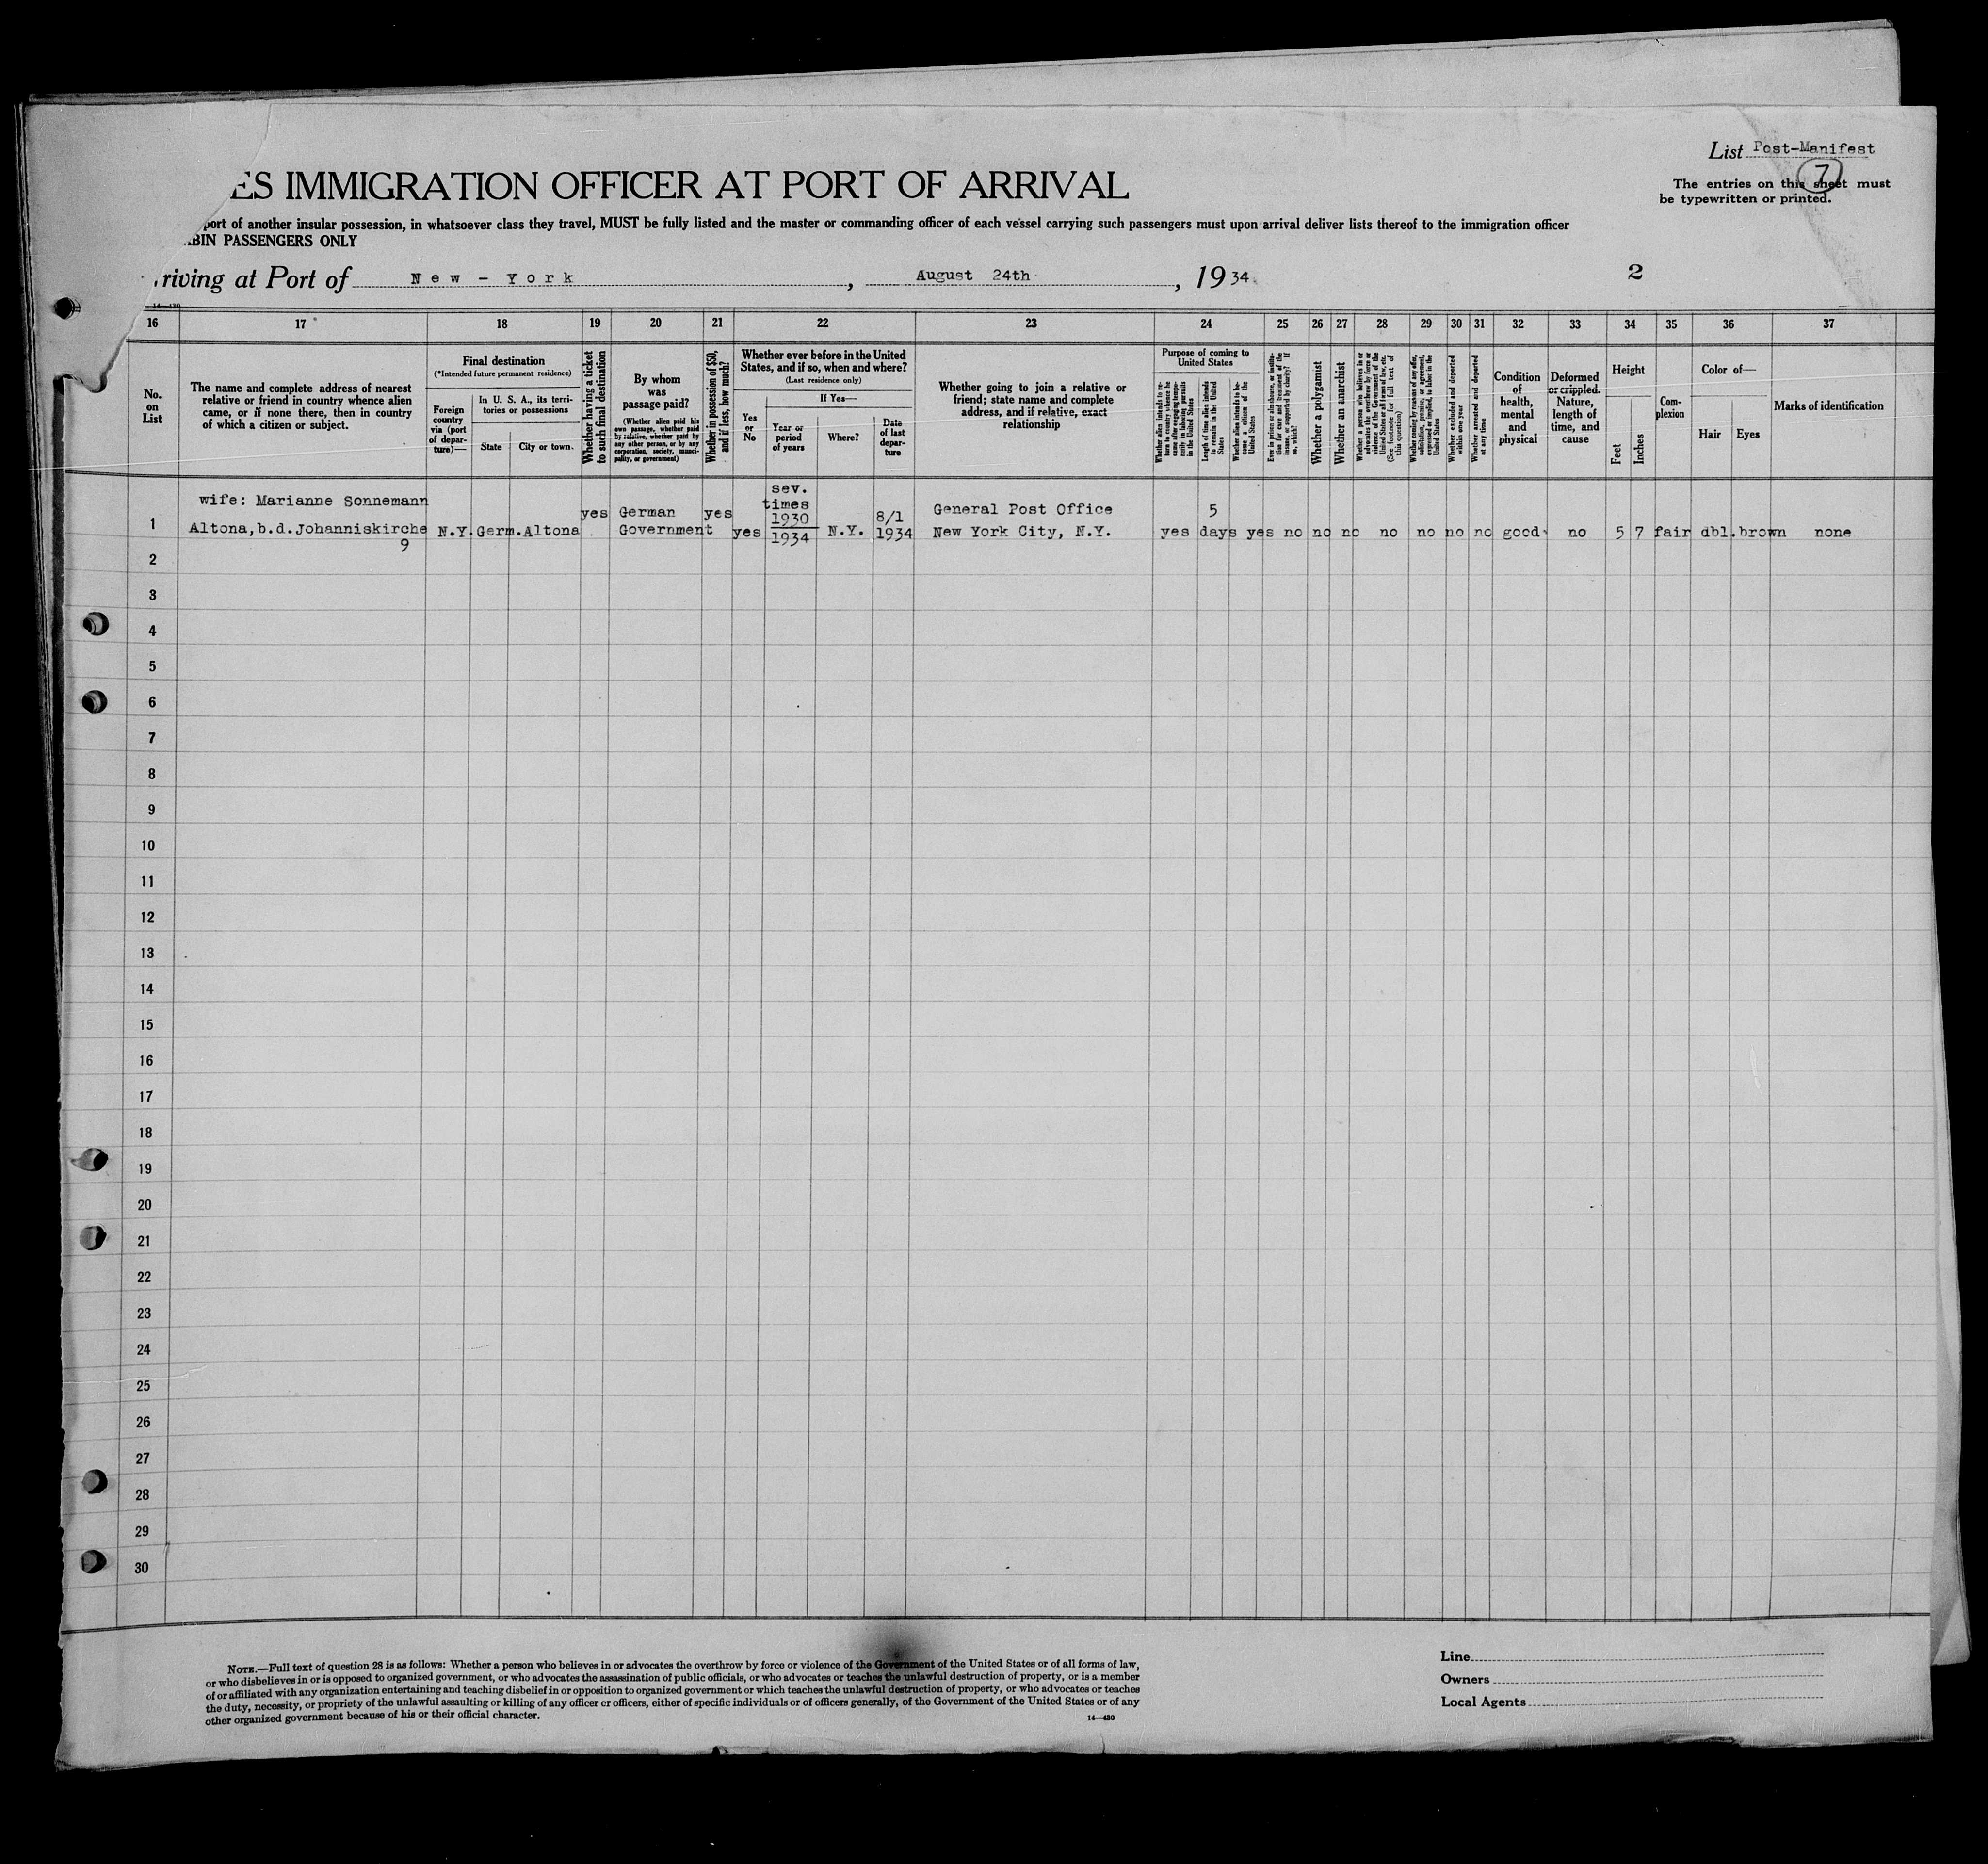 List Post-Manifest
7
ES IMMIGRATION OFFICER AT PORT OF ARRIVAL
The entries on this sheet must
be typewritten or printed.
port of another insular possession, in whatsoever class they travel, MUST be fully listed and the master or commanding officer of each vessel carrying such passengers must upon arrival deliver lists thereof to the immigration officer
BIN PASSENGERS ONLY
riving at Port of New - York, August 24th, 1934
2
14—430
16 17 18 19 20 21 22 23 24 25 26 27 28 29 30 31 32 33 34 35 36 37
No.
on
List
The name and complete address of nearest
relative or friend in country whence alien
came, or if none there, then in country
of which a citizen or subject.
Final destination
(*Intended future permanent residence)
Foreign
country
via (port
of depar-
ture)—
In U. S. A., its terri-
tories or possessions
State
City or town.
Whether having a ticket
to such final destination
By whom
was
passage paid?
(Whether alien paid his
own passage, whether paid
by relative, whether paid by
any other person, or by any
corporation, society, munici-
pality, or government)
Whether in possession of $50,
and if less, how much?
Whether ever before in the United
States, and if so, when and where?
(Last residence only)
Yes
or
No
If Yes—
Year or
period
of years
Where?
Date
of last
depar-
ture
Whether going to join a relative or
friend; state name and complete
address, and if relative, exact
relationship
Purpose of coming to
United States
Whether alien intends to re-
turn to country whence he
came after engaging tempo-
rarily in laboring pursuits
in the United States
Length of time alien intends
to remain in the United
States
Whether alien intends to be-
come a citizen of the
United States
Ever in prison or almshouse, or institu-
tion for care and treatment of the
insane, or supported by charity? If
so, which?
Whether a polygamist
Whether an anarchist
Whether a person who believes in or
advocates the overthrow by force or
violence of the Government of the
United States or all forms of law, etc.
(See footnote for full text of
this question)
Whether coming by reason of any offer,
solicitation, promise, or agreement,
expressed or implied, to labor in the
United States
Whether excluded and deported
within one year
Whether arrested and deported
at any time
Condition
of
health,
mental
and
physical
Deformed
or crippled.
Nature,
length of
time, and
cause
Height
Feet
Inches
Com-
plexion
Color of—
Hair
Eyes
Marks of identification
1
wife: Marianne Sonnemann
Altona,b.d.Johanniskirche
9
N.Y. Germ. Altona
yes
German
Government
yes
yes
sev.
times
1930
1934
N.Y.
8/1
1934
General Post Office
New York City, N.Y.
yes
5
days
yes no no no no no no no good no 5 7 fair dbl. brown none
2
3
4
5
6
7
8
9
10
11
12
13
14
15
16
17
18
19
20
21
22
23
24
25
26
27
28
29
30
NOTE.—Full text of question 28 is as follows: Whether a person who believes in or advocates the overthrow by force or violence of the Government of the United States or of all forms of law,
or who disbelieves in or is opposed to organized government, or who advocates the assassination of public officials, or who advocates or teaches the unlawful destruction of property, or is a member
of or affiliated with any organization entertaining and teaching disbelief in or opposition to organized government or which teaches the unlawful destruction of property, or who advocates or teaches
the duty, necessity, or propriety of the unlawful assaulting or killing of any officer or officers, either of specific individuals or of officers generally, of the Government of the United States or of any
other organized government because of his or their official character.
14—430
Line
Owners
Local Agents